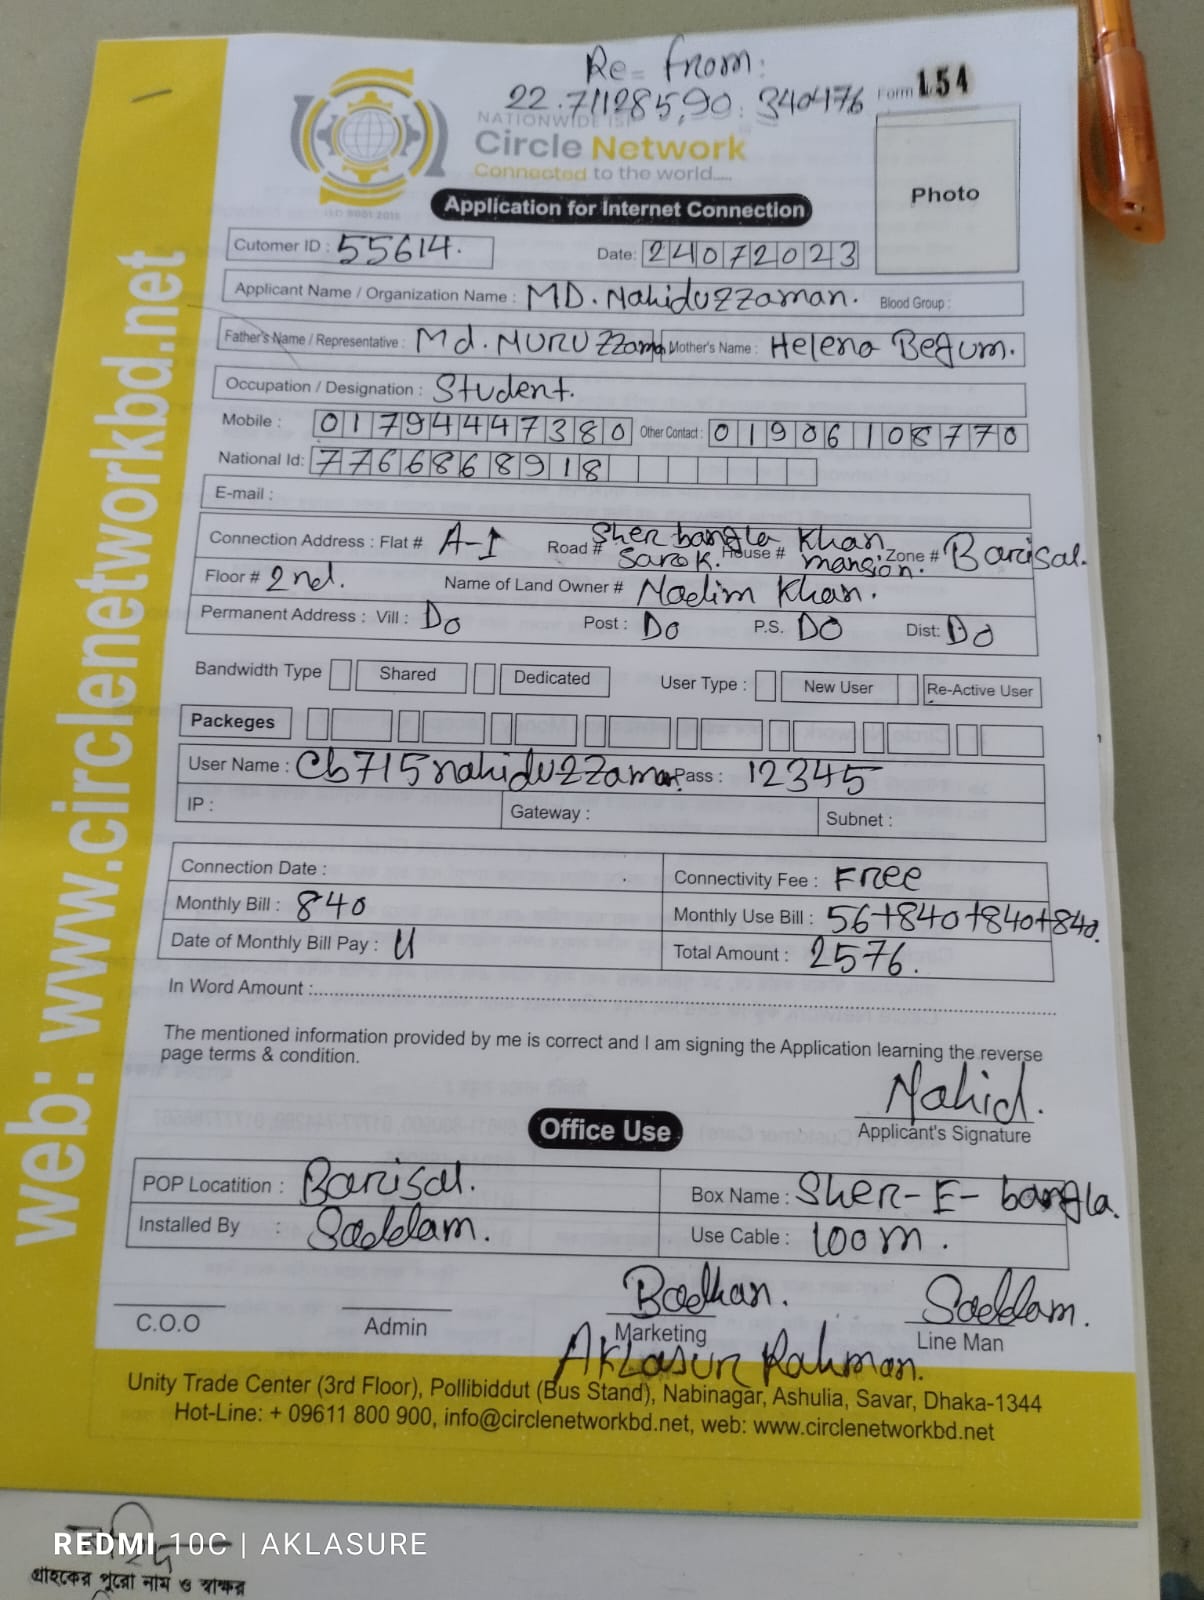 Re= from:
22.711285,90.340476
Form 154
NATIONWIDE ISP
Circle Network
Connected to the world.....
ISO 9001:2015
Photo
Application for Internet Connection
Cutomer ID : 55614.
Date: 24072023
Applicant Name / Organization Name : MD. Nahiduzzaman. Blood Group :
Father's Name / Representative : Md. NURUZZaman Mother's Name : Helena Begum.
Occupation / Designation : Student.
Mobile : 01794447380 Other Contact : 01906108770
National Id: 7766868918
E-mail :
Connection Address : Flat # A-1 Road # Sher bangla Sarok. House # Khan mansion. Zone # Barisal.
Floor # 2nd. Name of Land Owner # Nadim Khan.
Permanent Address : Vill : Do Post : Do P.S. DO Dist: DO
Bandwidth Type Shared Dedicated User Type : New User Re-Active User
Packeges
User Name : Cb715nahiduzzaman Pass : 12345
IP : Gateway : Subnet :
Connection Date : Connectivity Fee : Free
Monthly Bill : 840 Monthly Use Bill : 56+840+840+840.
Date of Monthly Bill Pay : Total Amount : 2576.
In Word Amount :
The mentioned information provided by me is correct and I am signing the Application learning the reverse
page terms & condition.
Nahid.
Applicant's Signature
Office Use
POP Locatition : Barisal. Box Name : Sher-E-bangla.
Installed By : Saddam. Use Cable : 100m.
Badhan. Saddam.
C.O.O Admin Marketing Line Man
AKLASUR Rahman.
Unity Trade Center (3rd Floor), Pollibiddut (Bus Stand), Nabinagar, Ashulia, Savar, Dhaka-1344
Hot-Line: + 09611 800 900, info@circlenetworkbd.net, web: www.circlenetworkbd.net
web: www.circlenetworkbd.net
REDMI 10C | AKLASURE
গ্রাহকের পুরো নাম ও স্বাক্ষর